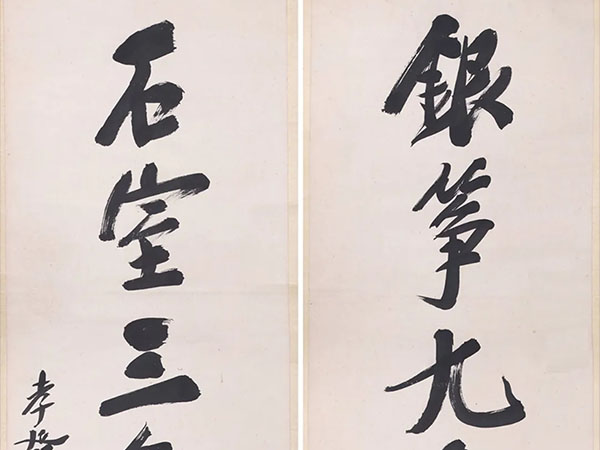 銀筝九
石室三
孝